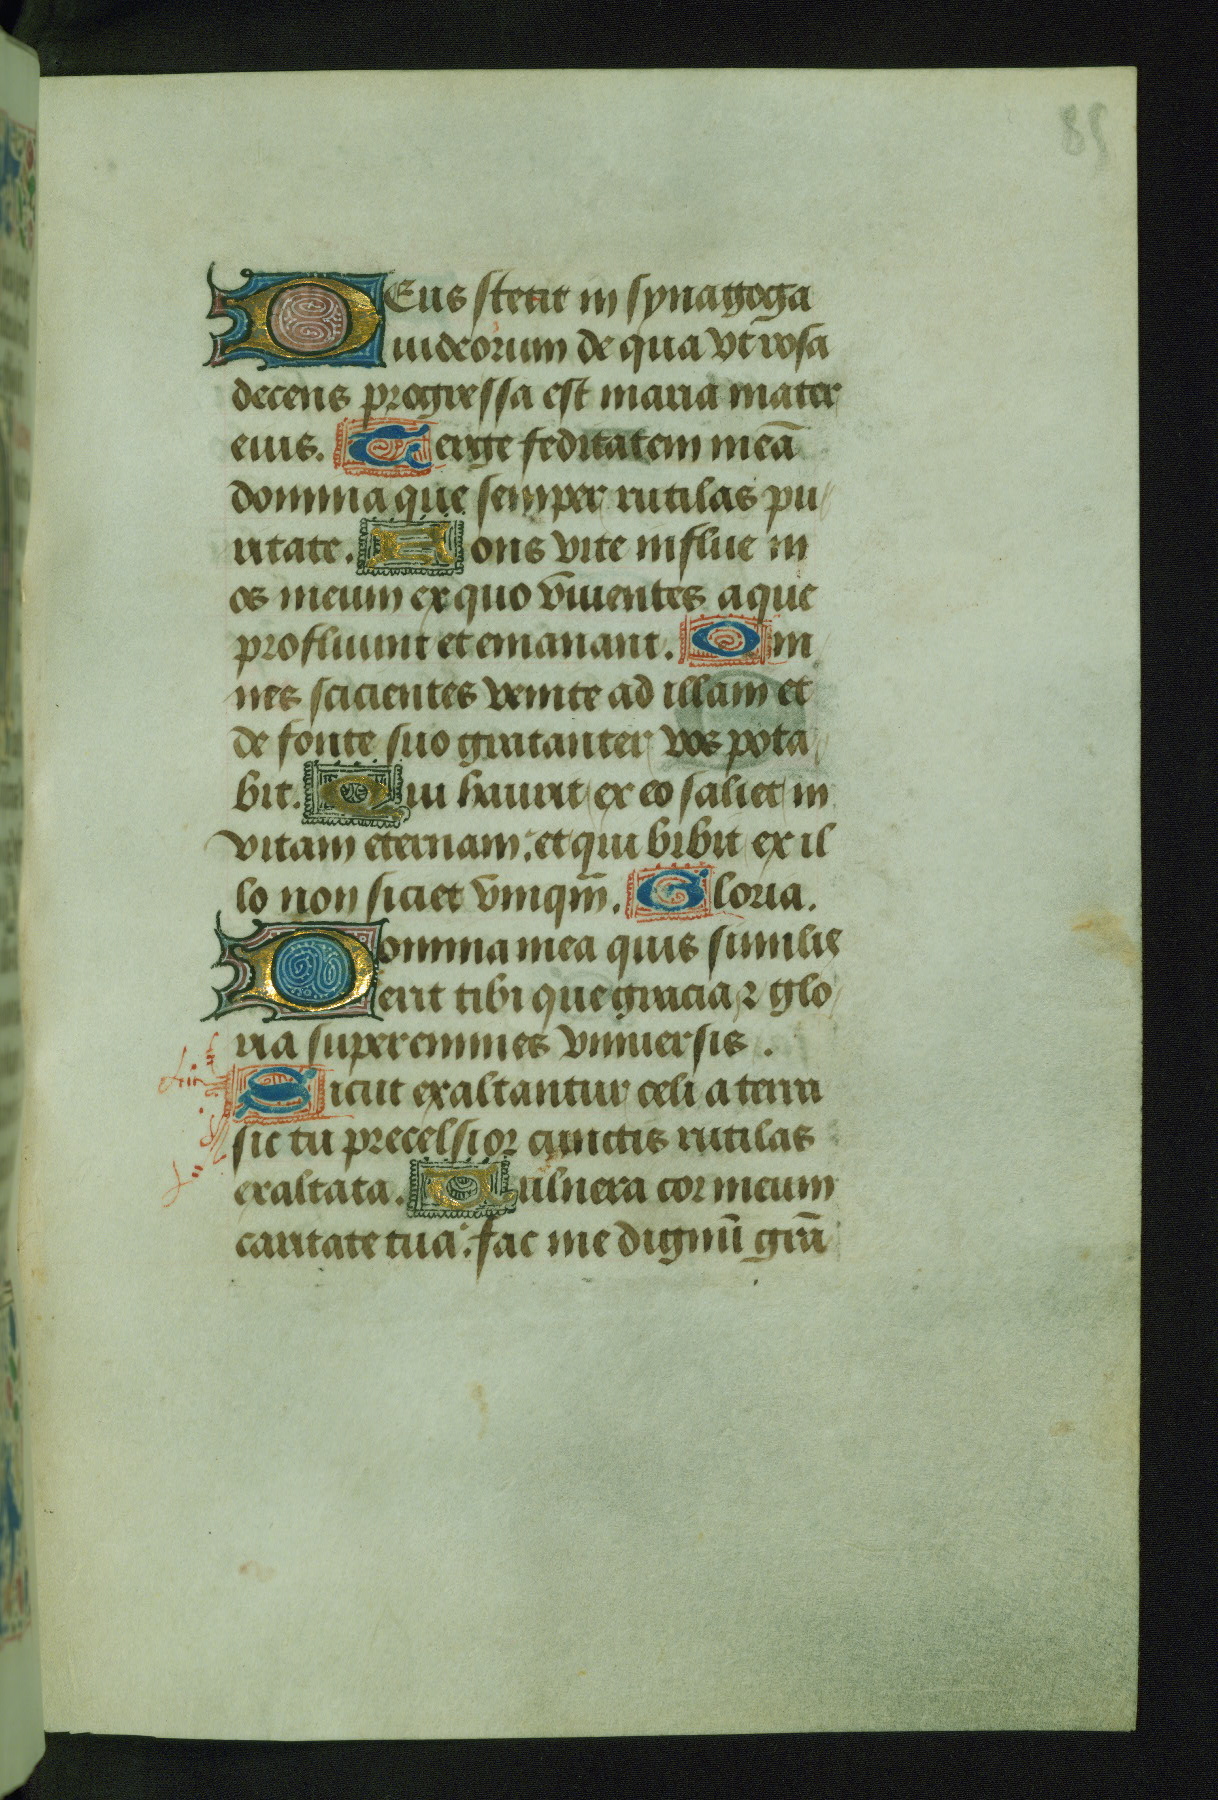 85
DEus stetit in synagoga
iudeorum de qua vt rosa
decens progressa est maria mater
eius. Terge feditatem meā
domina que semper rutilas pu
ritate. Fons vite influe in
os meum ex quo viuentes aque
profluunt et emanant. Om
nes scicientes venite ad illam et
de fonte suo gratanter vos pota
bit. Qui haurit ex eo saliet in
vitam eternam: et qui bibit ex il
lo non siciet vmqm̄. Gloria.
Domina mea quis similis
erit tibi que gracia ꝛ glo
ria superemines vniuersis.
Sicut exaltantur celi a terra
sic tu precelsior cunctis rutilas
exaltata. Uulnera cor meum
caritate tua: fac me dignū grā